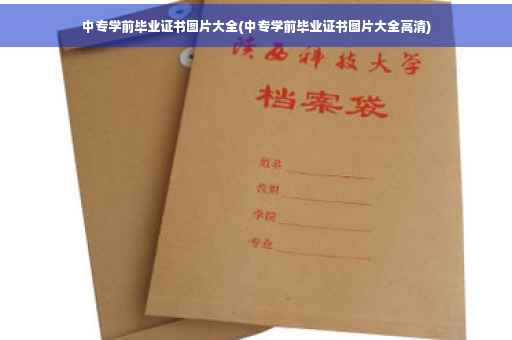 中专学前毕业证书图片大全(中专学前毕业证书图片大全高清)
陕西科技大学
档案袋
姓名
学院
专业